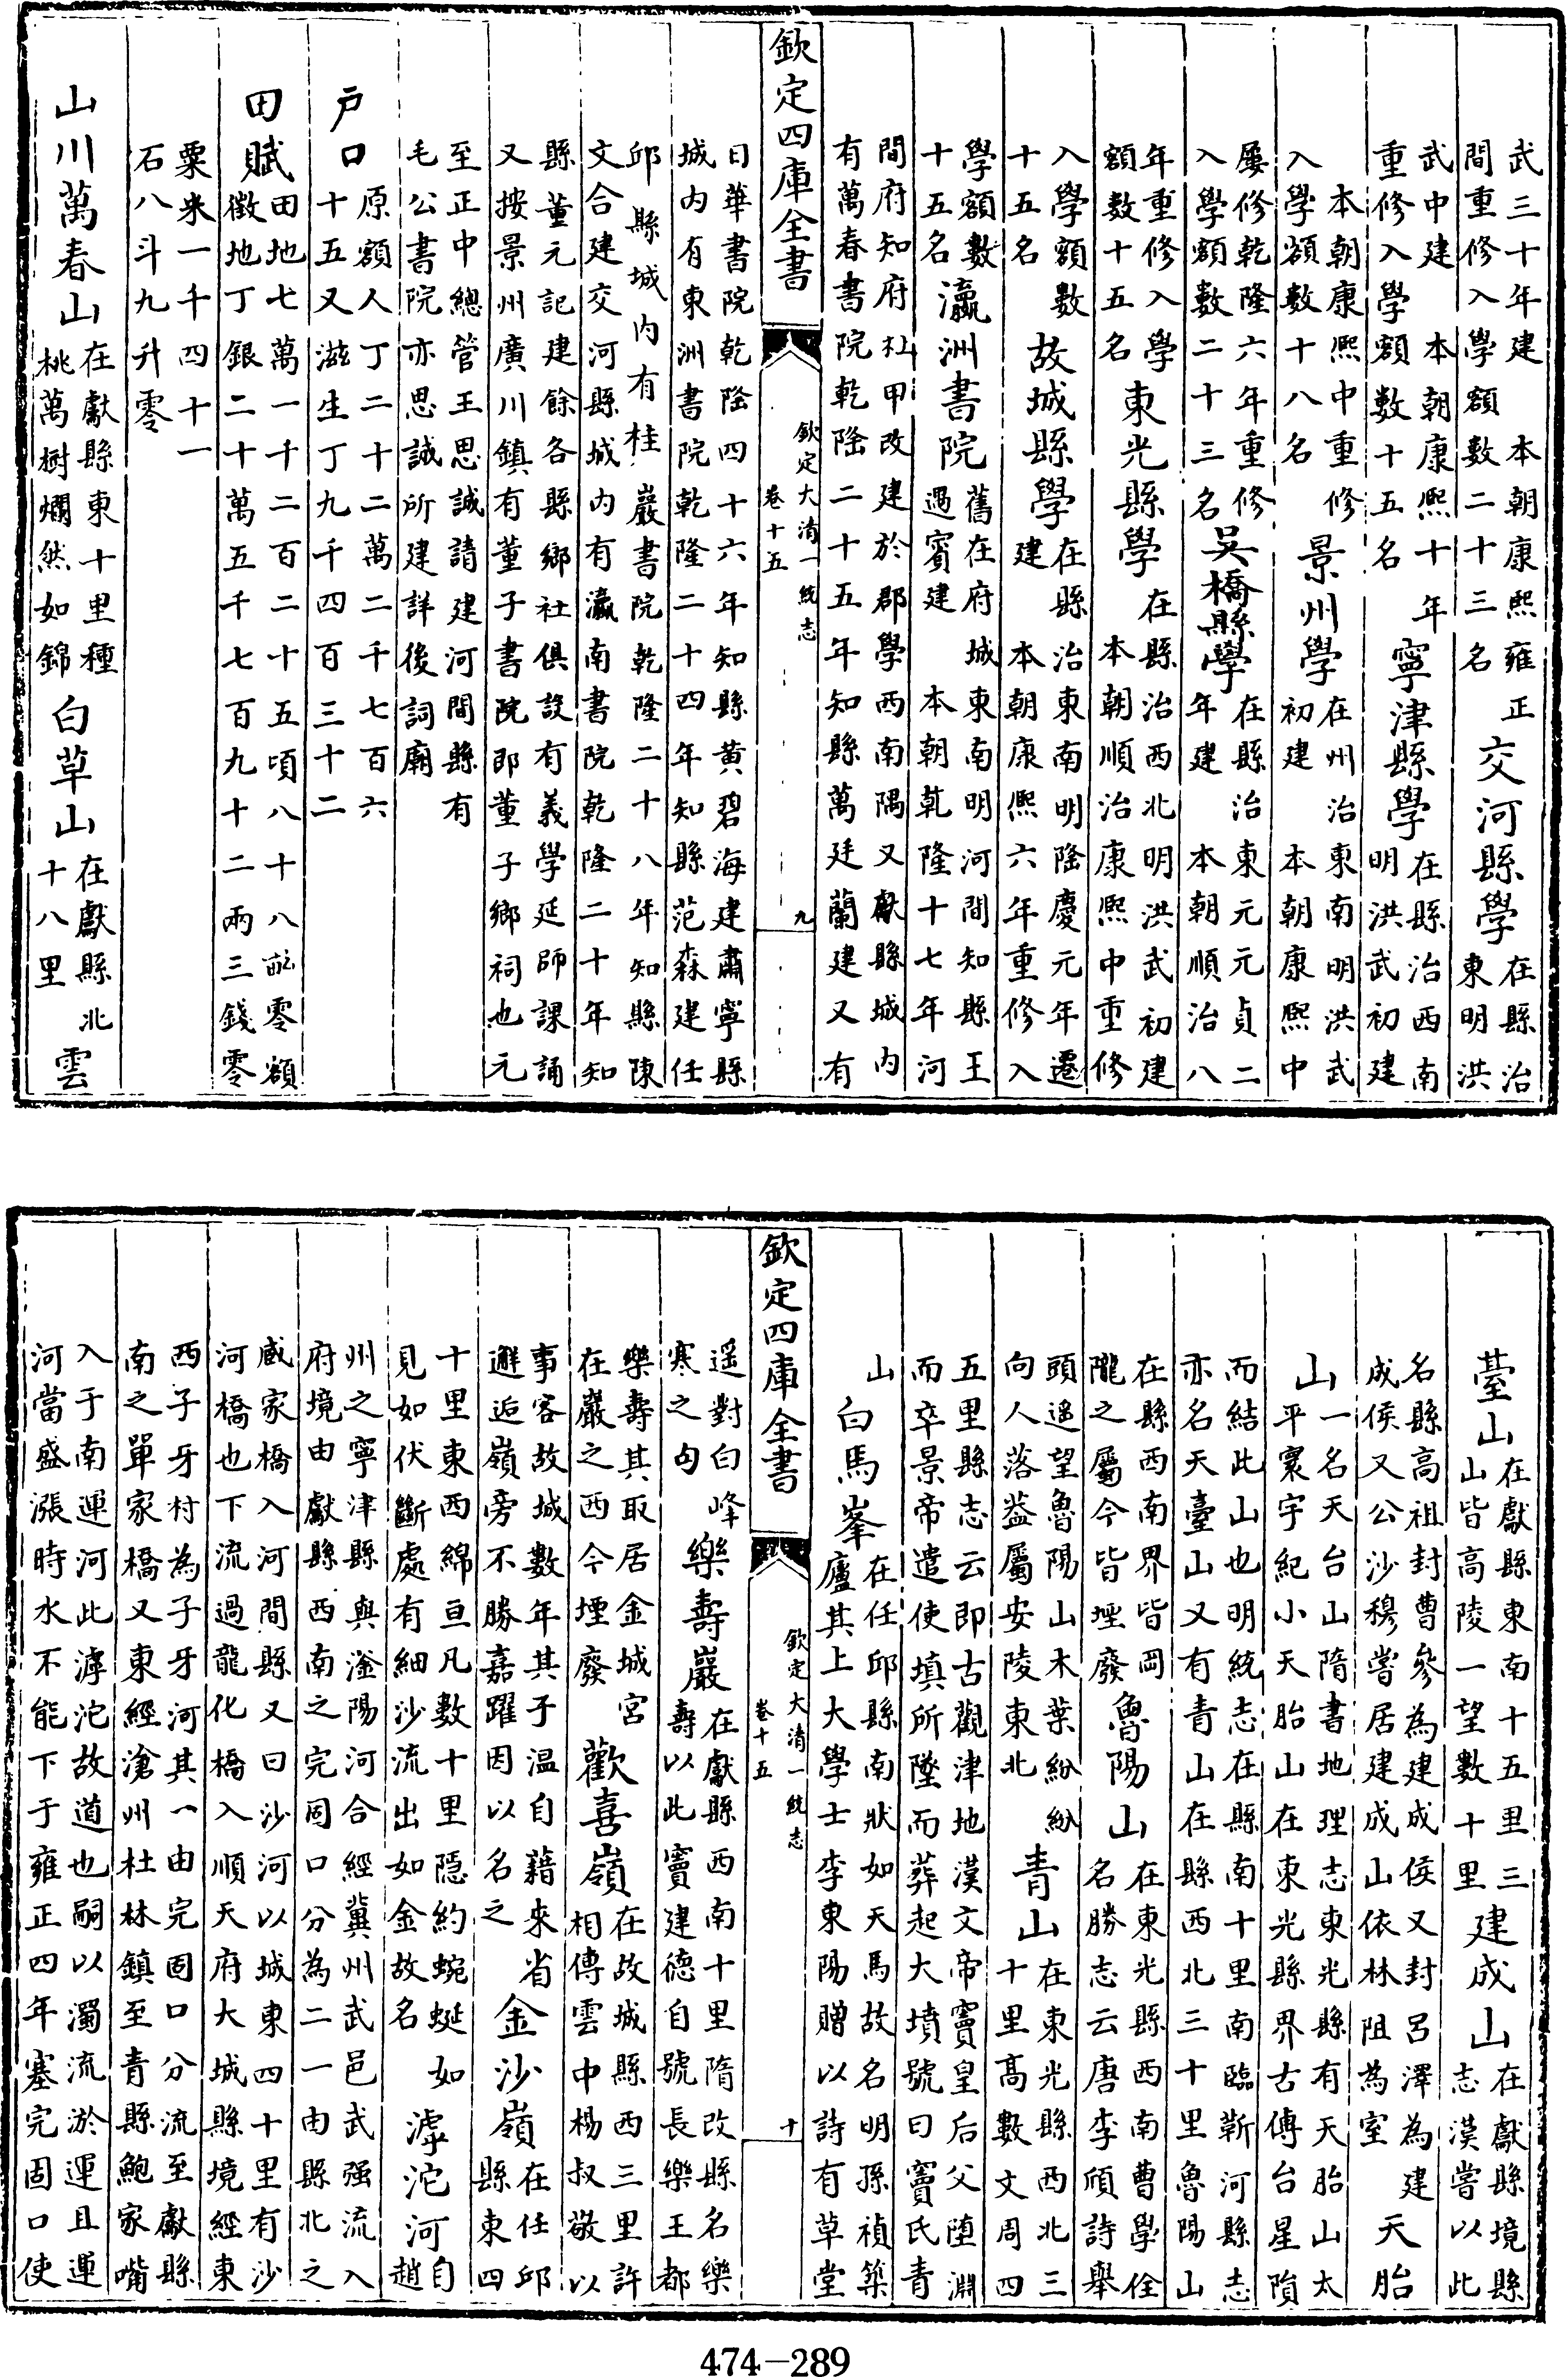 武三十年建 本朝康熙雍正間重修入學額數二十三名 交河縣學 在縣治東明洪
武中建 本朝康熙十年重修入學額數十五名 寧津縣學 在縣治西南明洪武初建
本朝康熙中重修入學額數十八名 景州學 在州治東南明洪武初建 本朝康熙中
屢修乾隆六年重修入學額數二十三名 吳橋縣學 在縣治東元元貞二年建 本朝順治八
年重修入學額數十五名 東光縣學 在縣治西北明洪武初建 本朝順治康熙中重修
入學額數十五名 故城縣學 在縣治東南明隆慶元年遷建 本朝康熙六年重修入
學額數十五名 瀛洲書院 舊在府城東南明河間知縣王遇賓建 本朝乾隆十七年河
間府知府杜甲改建於郡學西南隅又獻縣城内有萬春書院乾隆二十五年知縣萬廷蘭建又有
欽定四庫全書 欽定大清一統志 卷十五 九
日華書院乾隆四十六年知縣黄碧海建肅寧縣城内有東洲書院乾隆二十四年知縣范森建任
邱縣城内有桂巖書院乾隆二十八年知縣陳文合建交河縣城内有瀛南書院乾隆二十年知
縣董元記建餘各縣鄉社俱設有義學延師課誦又按景州廣川鎮有董子書院即董子鄉祠也元
至正中總管王思誠請建河間縣有毛公書院亦思誠所建詳後詞廟
戶口 原額人丁二十二萬二千七百六十五又滋生丁九千四百三十二
田賦 田地七萬一千二百二十五頃八十八畝零額徵地丁銀二十萬五千七百九十二兩三錢零
粟米一千四十一石八斗九升零
山川萬春山 在獻縣東十里種桃萬樹爛然如錦 白草山 在獻縣北十八里 雲
臺山 在獻縣東南十五里三山皆高陵一望數十里 建成山 在獻縣境縣志漢嘗以此
名縣高祖封曹參為建成侯又封呂澤為建成侯又公沙穆嘗居建成山依林阻為室 天胎
山 一名天台山隋書地理志東光縣有天胎山太平寰宇紀小天胎山在東光縣界古傳台星隕
而結此山也明統志在縣南十里南臨靳河縣志亦名天臺山又有青山在縣西北三十里魯陽山
在縣西南界皆岡隴之屬今皆堙廢 魯陽山 在東光縣西南曹學佺名勝志云唐李頎詩舉
頭遥望魯陽山木葉紛紛向人落葢屬安陵東北 青山 在東光縣西北三十里高數丈周四
五里縣志云即古觀津地漢文帝竇皇后父堕淵而卒景帝遣使填所墜而葬起大墳號曰竇氏青
山 白馬峯 在任邱縣南狀如天馬故名明孫禎築廬其上大學士李東陽贈以詩有草堂
欽定四庫全書 欽定大清一統志 卷十五 十
遥對白峰寒之句 樂壽巖 在獻縣西南十里隋改縣名樂壽以此竇建德自號長樂王都
樂壽其取居金城宮在巖之西今堙廢 歡喜嶺 在故城縣西三里許相傳雲中楊叔敬以
事客故城數年其子温自藉來省邂逅嶺旁不勝嘉躍因以名之 金沙嶺 在任邱縣東四
十里東西綿亘凡數十里隱約蜿蜒如見如伏斷處有細沙流出如金故名 滹沱河 自趙
州之寧津縣與滏陽河合經冀州武邑武强流入府境由獻縣西南之完固口分為二一由縣北之
臧家橋入河間縣又曰沙河以城東四十里有沙河橋也下流過龍化橋入順天府大城縣境經東
西子牙村為子牙河其一由完固口分流至獻縣南之單家橋又東經滄州杜林鎮至青縣鮑家嘴
入于南運河此滹沱故道也嗣以濁流淤運且運河當盛漲時水不能下于雍正四年塞完固口使
474-289